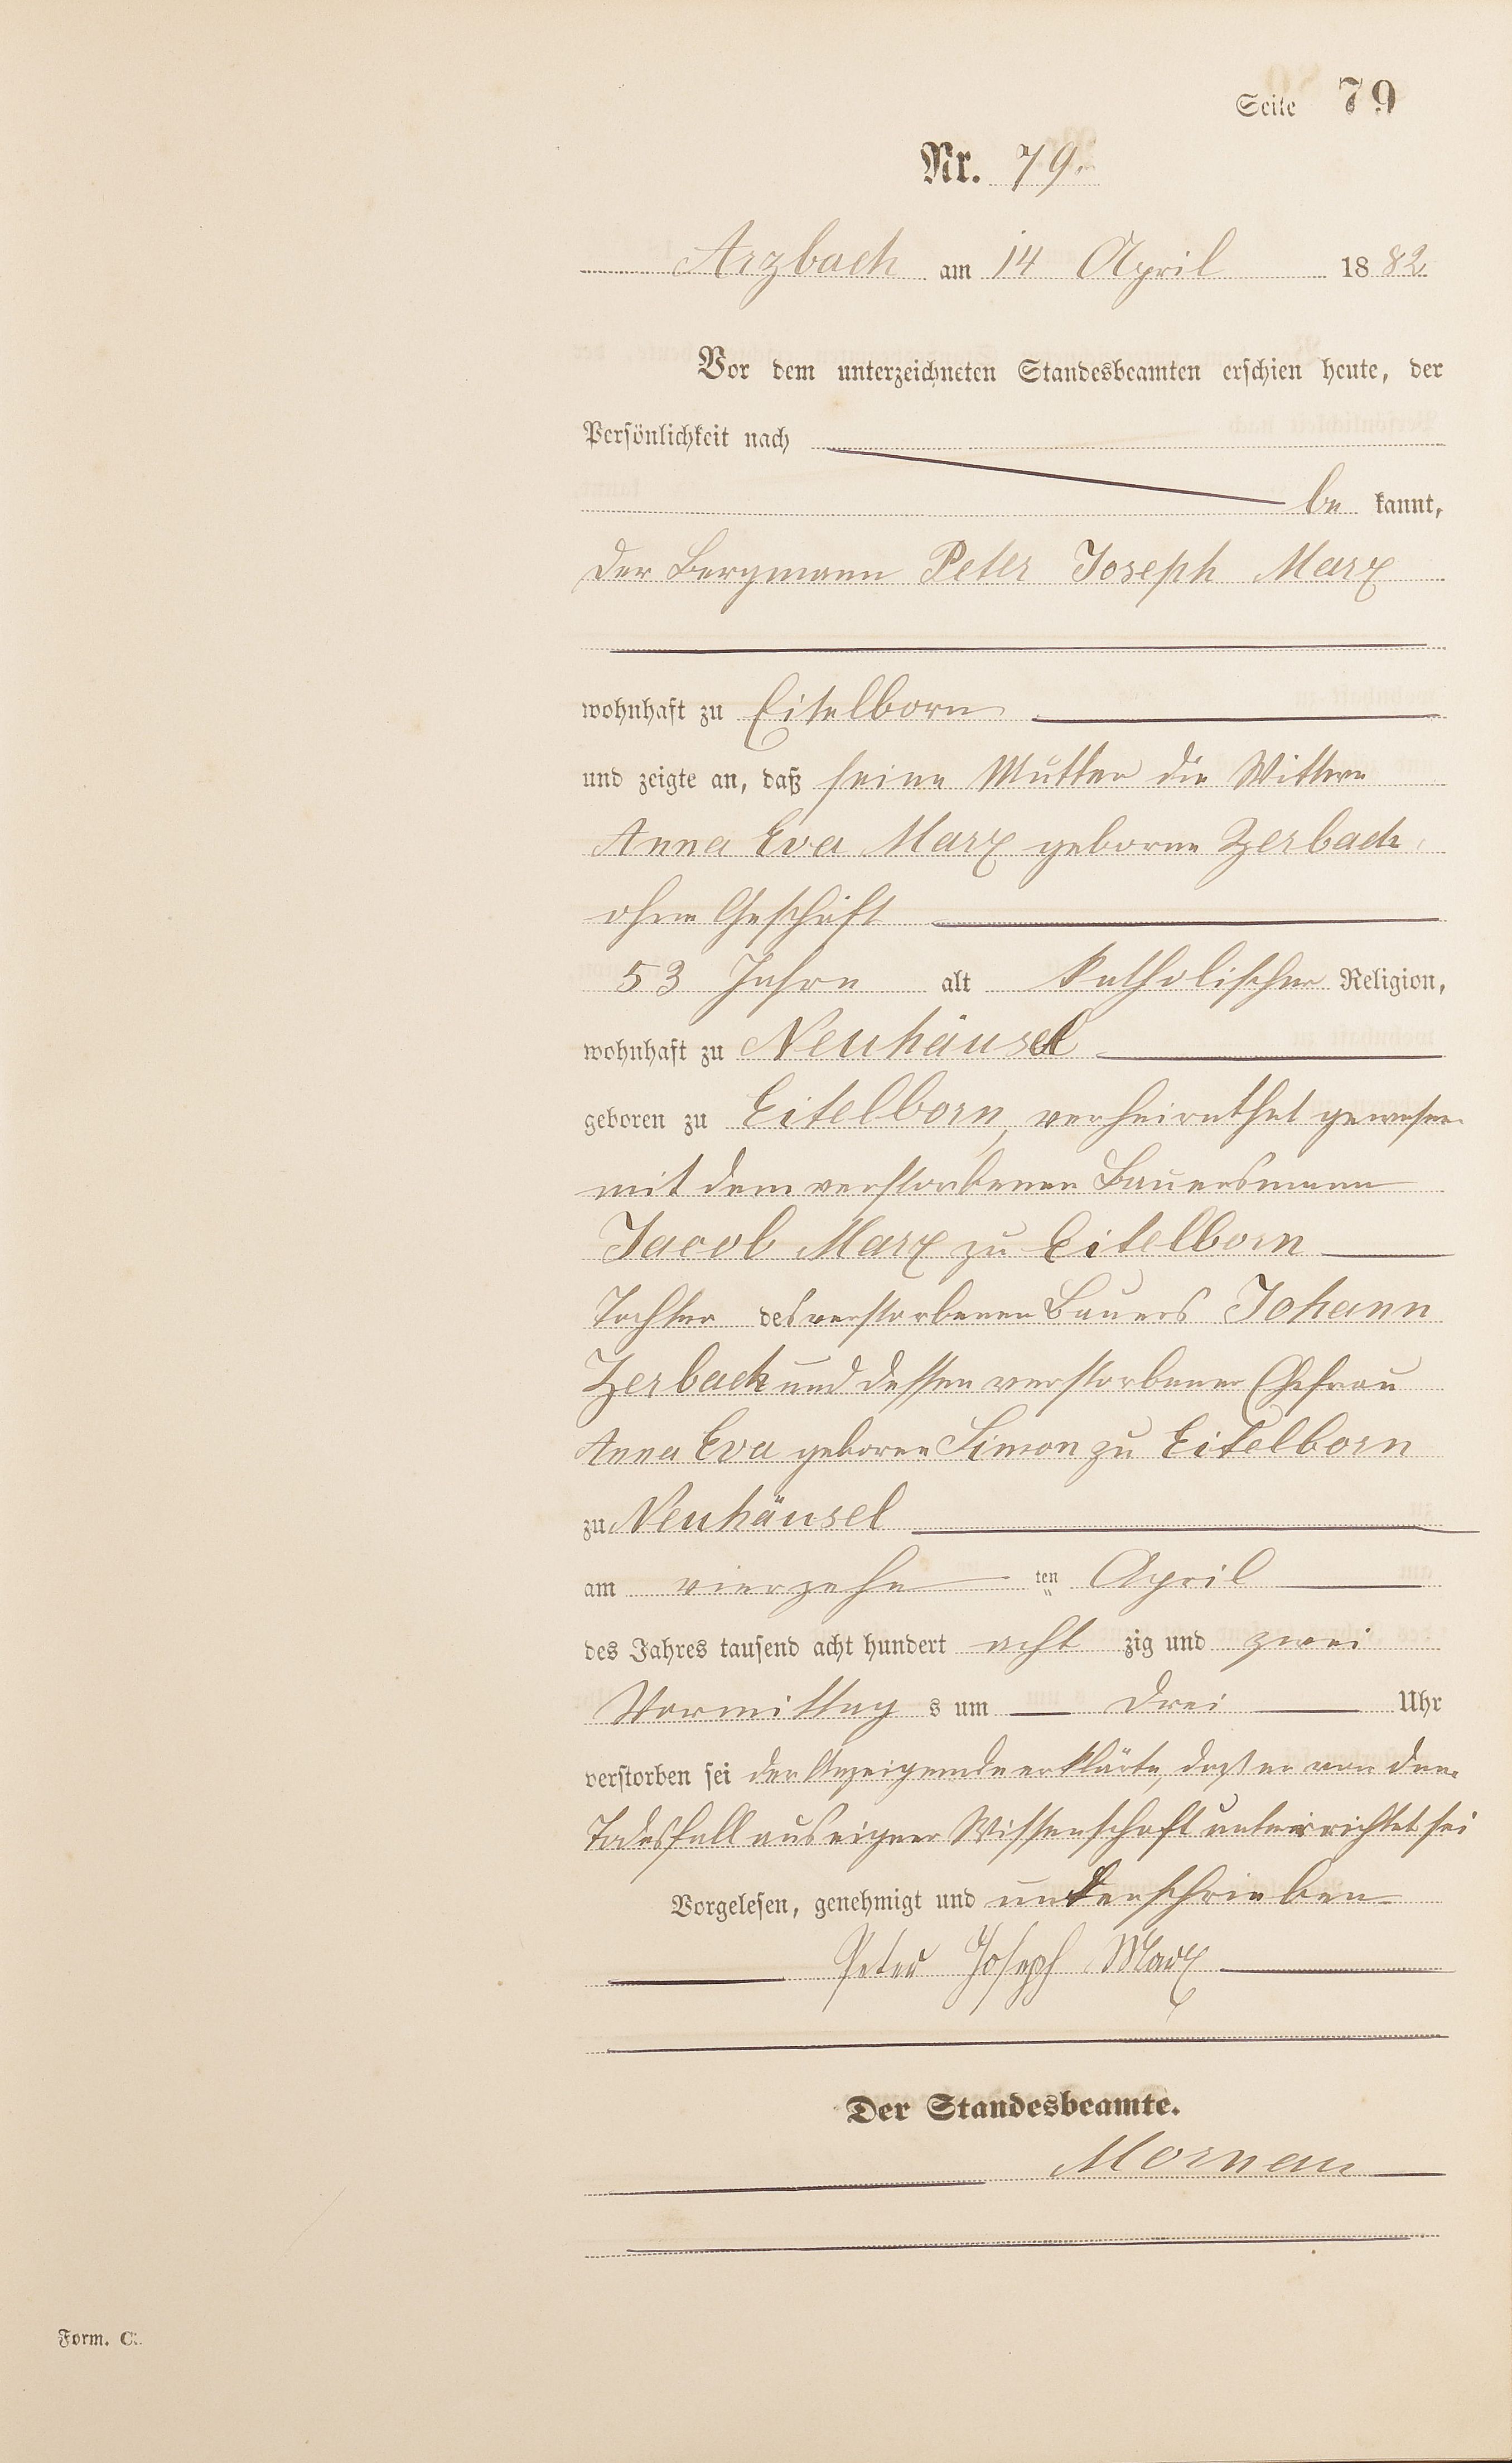 Seite 79
Nr. 79.
Arzbach am 14 April 1882
Vor dem unterzeichneten Standesbeamten erschien heute, der
Persönlichkeit nach
be kannt,
der Bergmann Peter Joseph Marx
wohnhaft zu Eitelborn
und zeigte an, daß seine Mutter die Wittwe
Anna Eva Marx geborne Zerbach,
ohne Geschäft
53 Jahre alt katholischer Religion,
wohnhaft zu Neuhäusel
geboren zu Eitelborn, verheirathet gewesen
mit dem verstorbenen Bauersmann
Jacob Marx zu Eitelborn
Tochter des verstorbenen Bauers Johann
Zerbach und dessen verstorbener Ehefrau
Anna Eva geborne Simon zu Eitelborn
zu Neuhäusel
am vierzehn ten April
des Jahres tausend acht hundert acht zig und zwei
Vormittag s um drei Uhr
verstorben sei der Anzeigende erklärte, daß er von dem
Todesfall aus eigner Wissenschaft unterrichtet sei
Vorgelesen, genehmigt und unterschrieben
Peter Joseph Marx
Der Standesbeamte.
Mornau
Form. C.